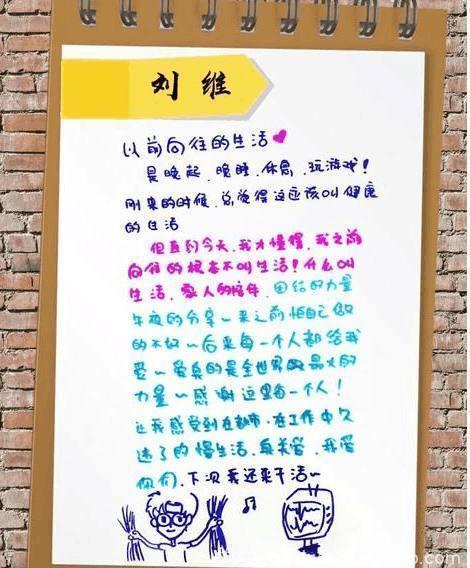 刘维
以前向往的生活
是晚起、晚睡、休息、玩游戏!
刚来的时候,总觉得这应该叫健康
的生活
但直到今天,我才懂得,我之前
向往的根本不叫生活!什么叫
生活,家人的陪伴,团结的力量
午夜的分享~来之前怕自己做
的不好~后来每一个人都给我
爱~爱真的是全世界最大的
力量~感谢这里每一个人!
让我感受到在都市、在工作中久
违了的慢生活、真关爱,我爱
你们,下次我还来干活~